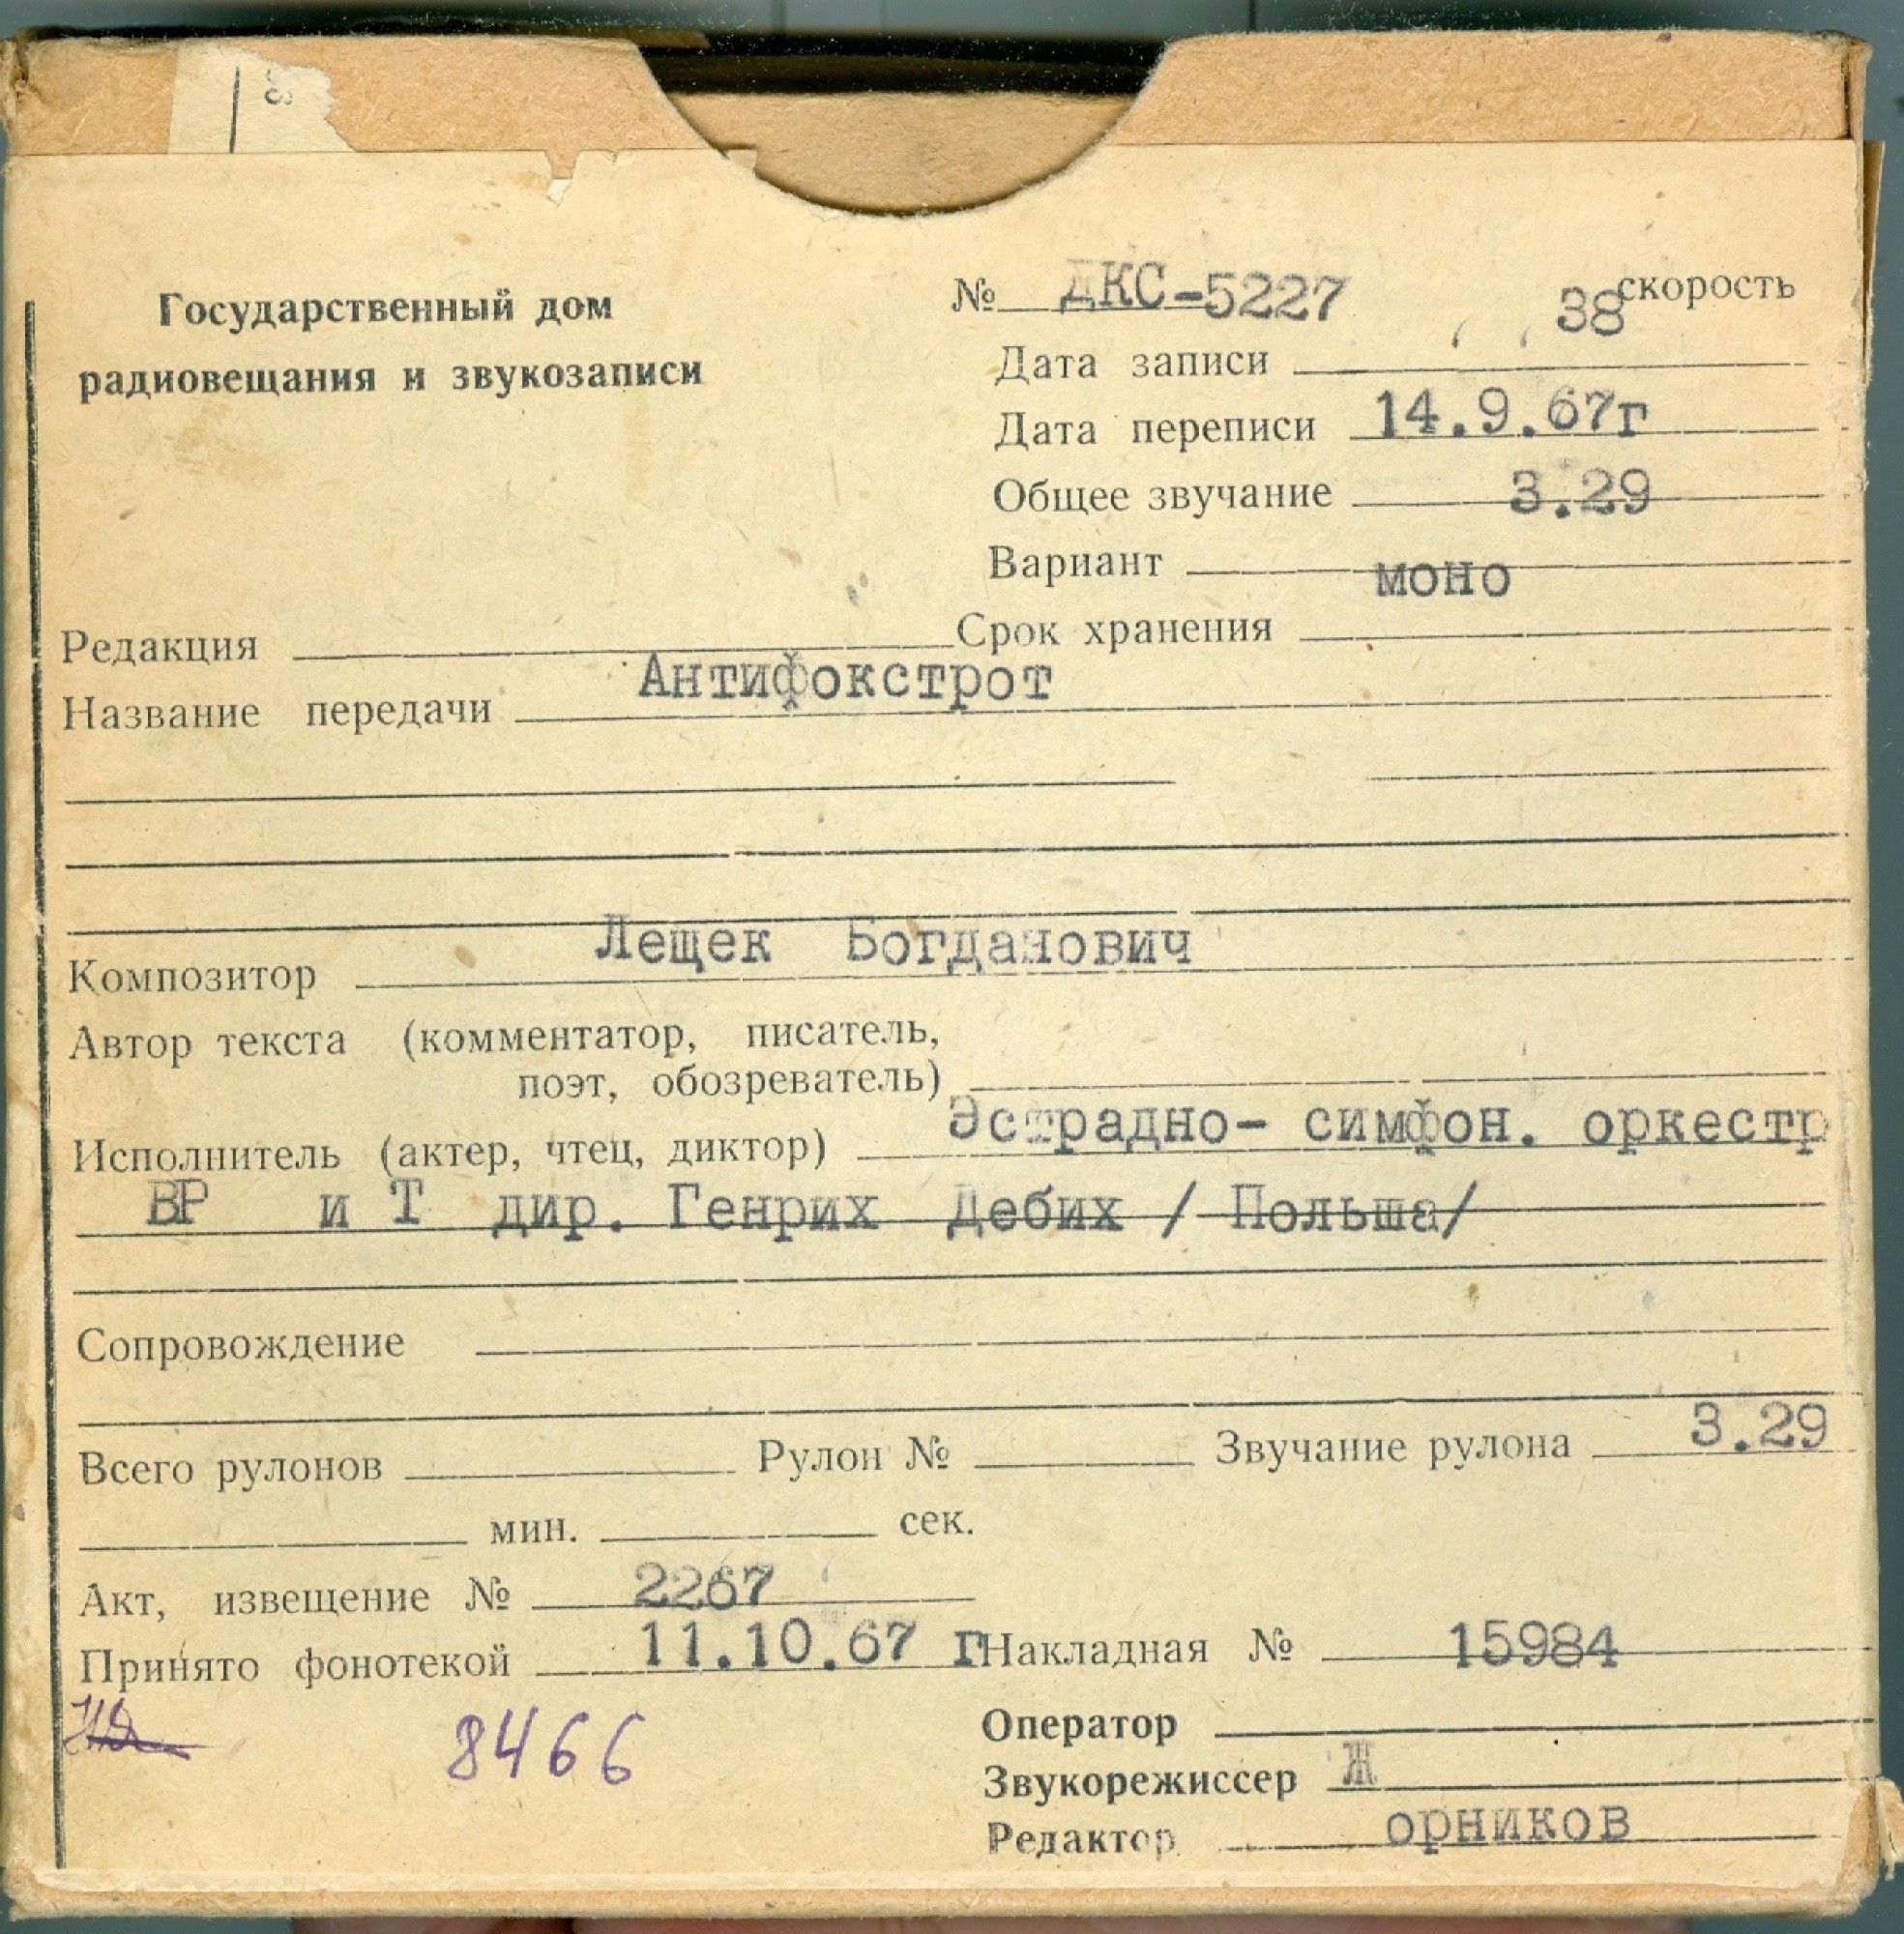 Государственный дом
радиовещания и звукозаписи
№ ДКС-5227 38 скорость
Дата записи
Дата переписи 14.9.67г
Общее звучание 3.29
Вариант моно
Редакция Срок хранения
Название передачи Антифокстрот
Композитор Лещек Богданович
Автор текста (комментатор, писатель,
поэт, обозреватель)
Исполнитель (актер, чтец, диктор) Эстрадно- симфон. оркестр
ВР и Т дир. Генрих Дебих / Польша/
Сопровождение
Всего рулонов Рулон № Звучание рулона 3.29
мин. сек.
Акт, извещение № 2267
Принято фонотекой 11.10.67 г Накладная № 15984
8466
Оператор
Звукорежиссер Ж
Редактор орников